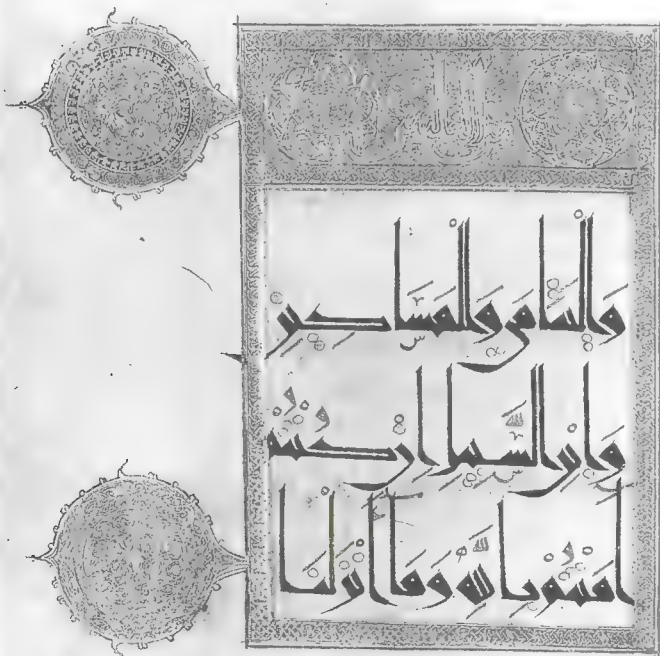 وَالْيَتَامَى وَالْمَسَاكِينِ
وَابْنِ السَّبِيلِ إِنْ كُنْتُمْ
آمَنْتُمْ بِاللَّهِ وَمَا أَنْزَلْنَا